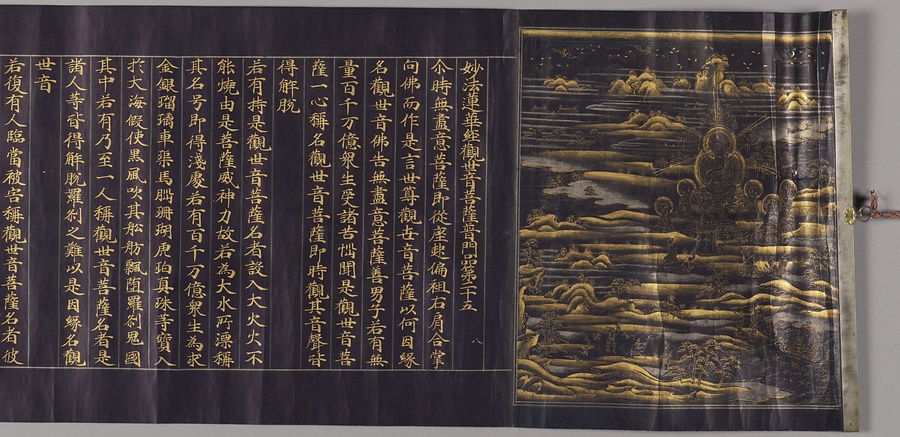 妙法蓮華經觀世音菩薩普門品第二十五
八
尒時無盡意菩薩即從座起偏袒右肩合掌
向佛而作是言世尊觀世音菩薩以何因緣
名觀世音佛告無盡意菩薩善男子若有無
量百千万億衆生受諸苦惱聞是觀世音菩
薩一心稱名觀世音菩薩即時觀其音聲皆
得解脫
若有持是觀世音菩薩名者設入大火火不
能燒由是菩薩威神力故若為大水所漂稱
其名号即得淺處若有百千万億衆生為求
金銀瑠璃車磲馬瑙珊瑚虎珀真珠等寶入
於大海假使黒風吹其舩舫飄堕羅剎鬼國
其中若有乃至一人稱觀世音菩薩名者是
諸人等皆得解脫羅剎之難以是因緣名觀
世音
若復有人臨當被害稱觀世音菩薩名者彼